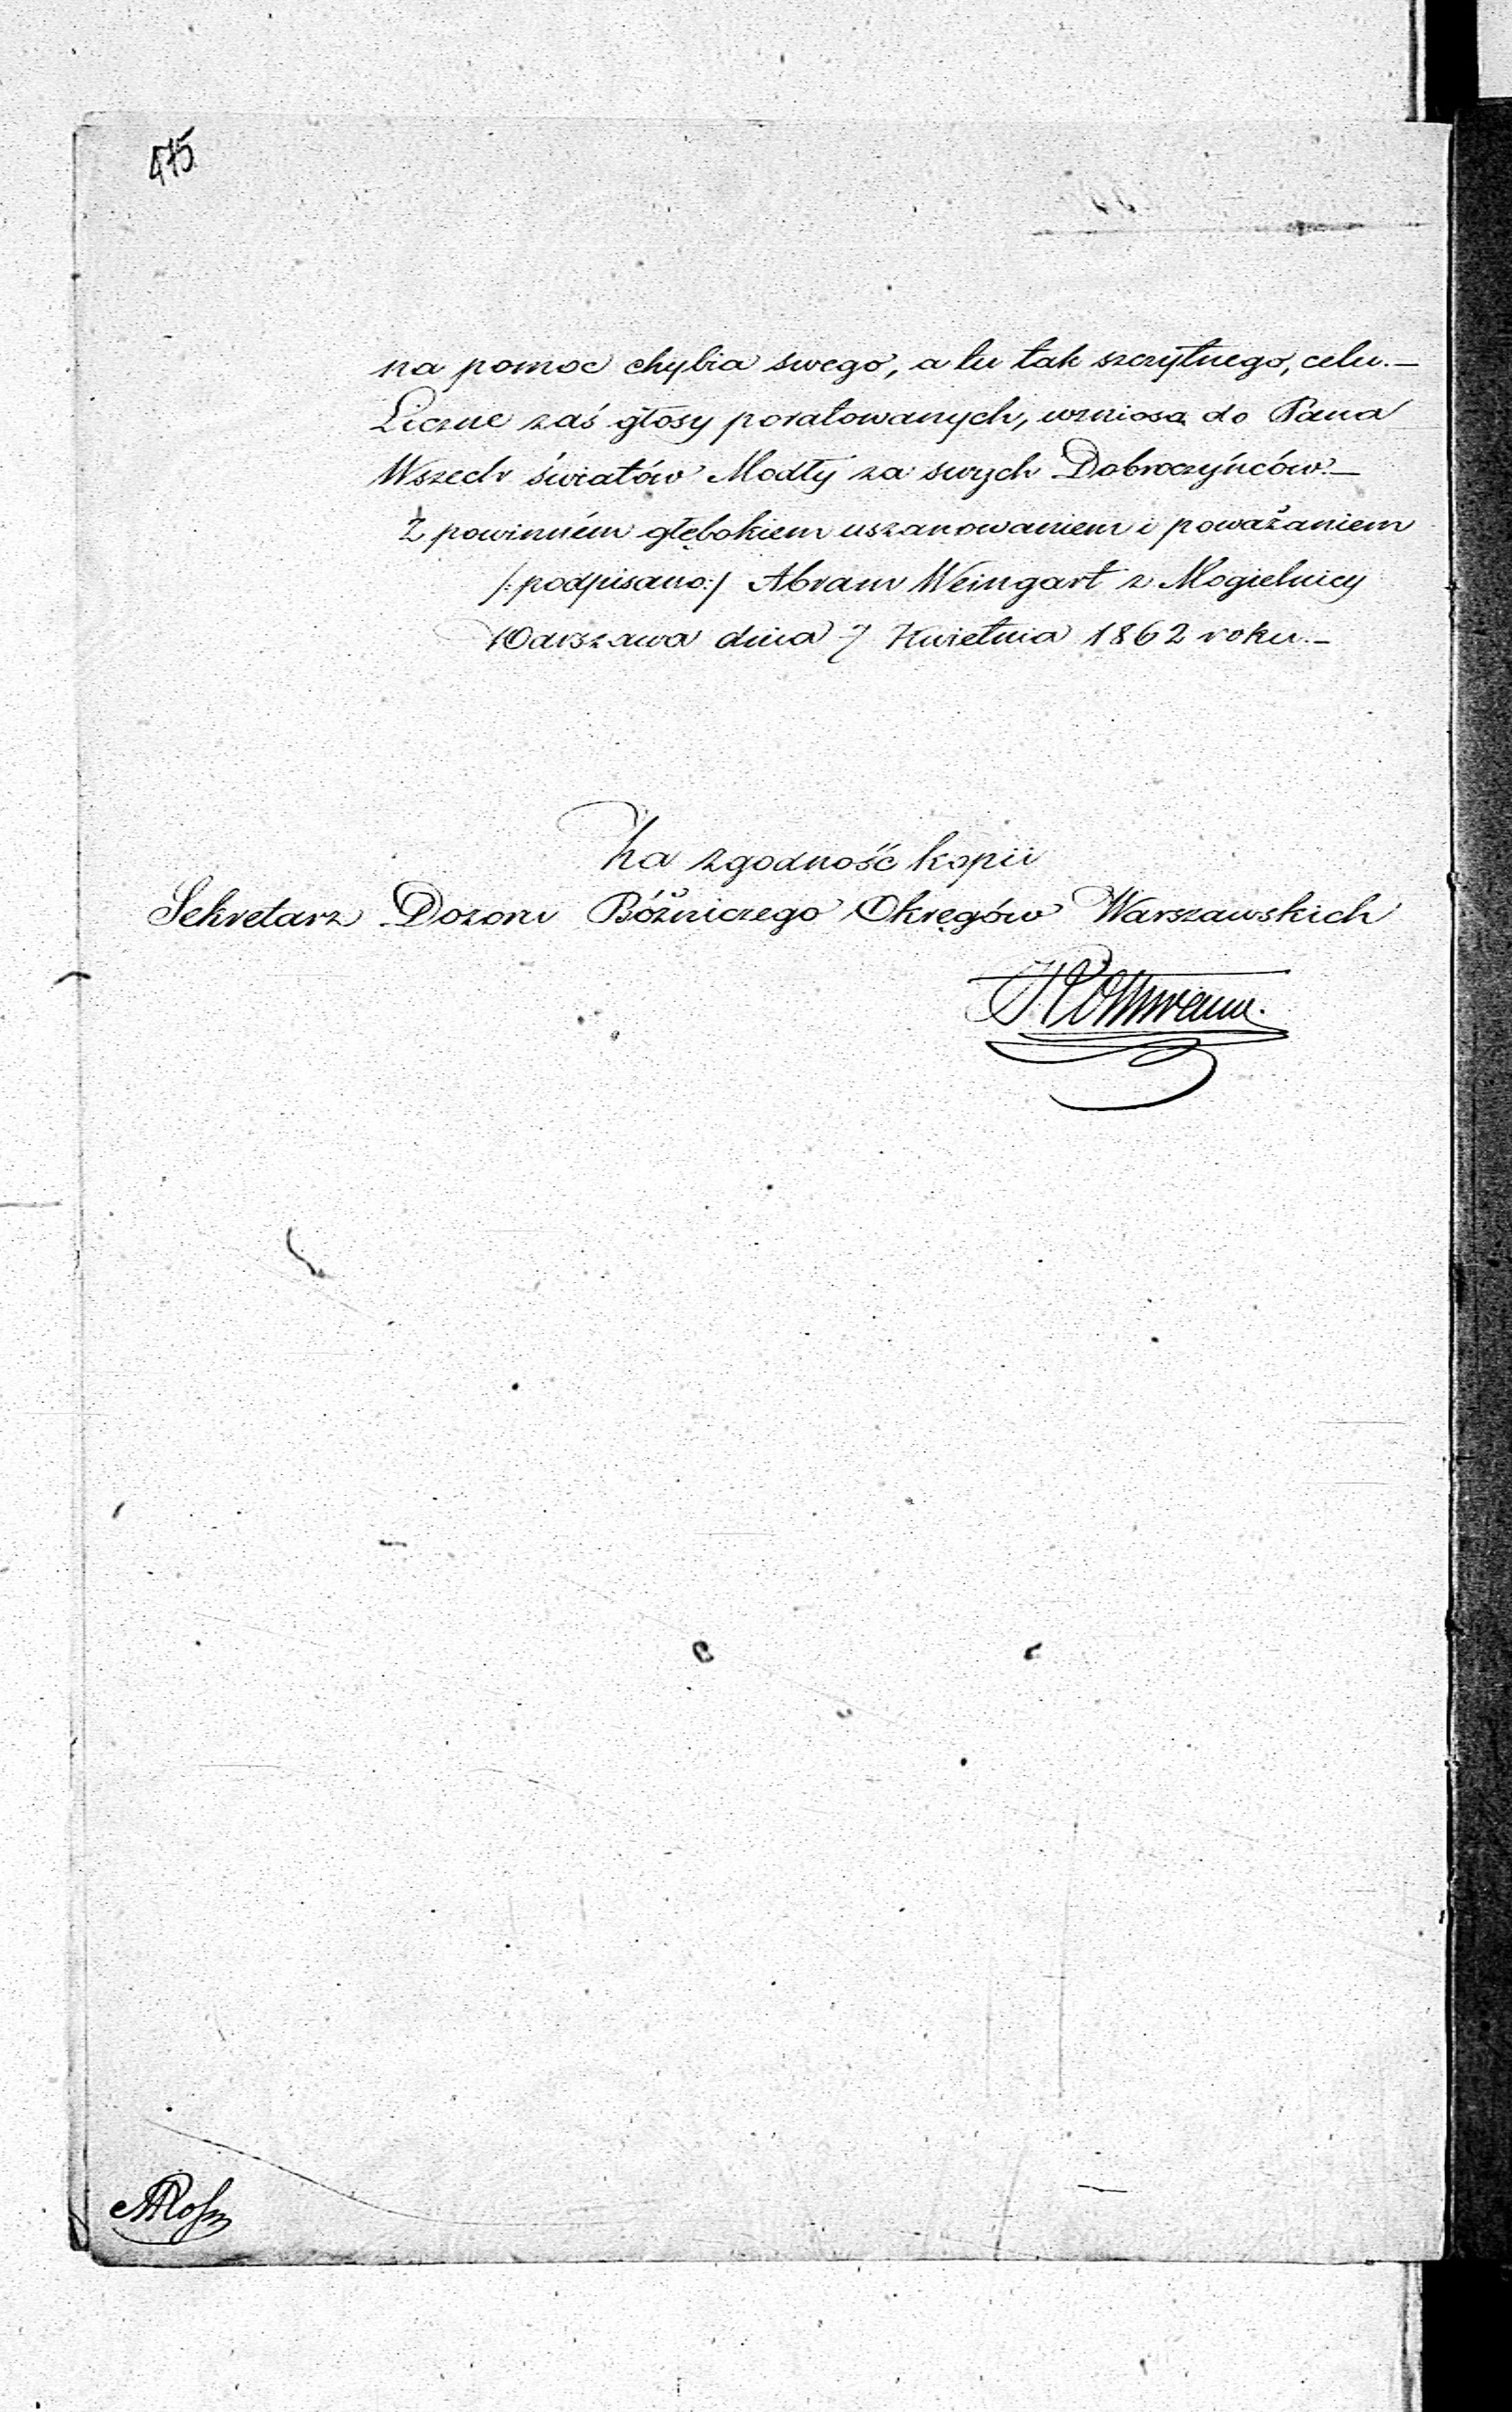 475
na pomoc chybia swego, a tu tak szczytnego, celu.—
Liczne zaś głosy poratowanych, wzniosą do Pana
Wszech światów Modły za swych Dobroczyńców.—
Z powinném głębokiem uszanowaniem i poważaniem
/:podpisano:/ Abram Weingart z Mogielnicy
Warszawa dnia 7 Kwietnia 1862 roku.—
Za zgodność kopii
Sekretarz Dozoru Bóźniczego Okręgów Warszawskich